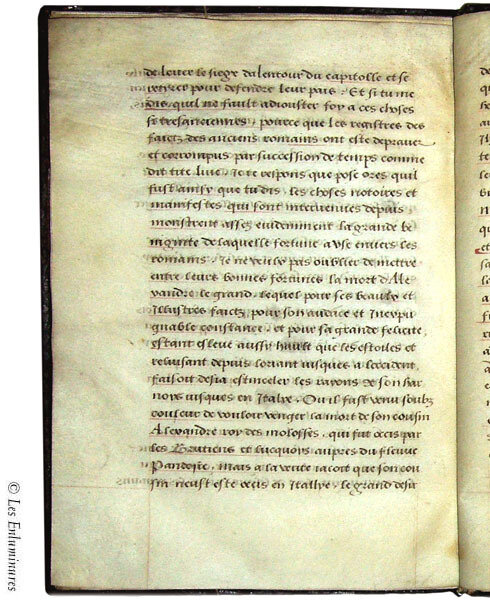 de lever le siege dalentour du capitolle et se
retirer pour defendre leur pais . Et si tu me
dis , quil ne fault adiouster foy a ces choses
si tresanciennes , pource que les registres des
faictz des anciens romains ont este deprauez
et corrompus par succession de temps comme
dit tite liue . Je te respons que pose ores quil
fust ainsy que tu dis , les choses notoires et
manifestes qui sont interuenues depuis
monstrent assez euidemment la grande be
nignite de laquelle fortune a vse enuers les
romains . Je ne veulx pas oublier de mettre
entre leurs bonnes fortunes la mort dAle
xandre le grand , lequel pour ses beaulx et
Illustres faictz , pour son audace et Inexpu
gnable constance , et pour sa grande felicite ,
estant esleue aussy hault que les estoiles et
reluisant depuis lorient iusques a loccident ,
faisoit desia estinceler les rayons de son har
noys iusques en Italye . Ou il fust venu soubz
couleur de vouloir venger la mort de son cousin
Alexandre roy des molosses , qui fut occis par
les Brutiens et lucquois aupres du fleuue
Pandosie , mais a la verite iacoit que son cou
sin neust este occis en Itallye , le grand desir
© Les Enluminures